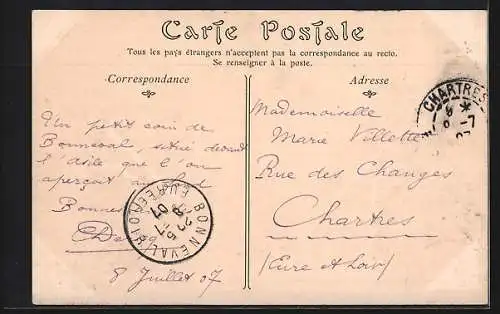 Carte Postale
Tous les pays étrangers n'acceptent pas la correspondance au recto.
Se renseigner à la poste.
Correspondance
Un petit coin de
Bonneval, situé devant
l'asile que l'on
aperçoit au
8 Juillet 07
BONNEVAL
Adresse
Mademoiselle
Marie Villette
Rue des Changes
Chartres
(Eure et Loir)
CHARTRES